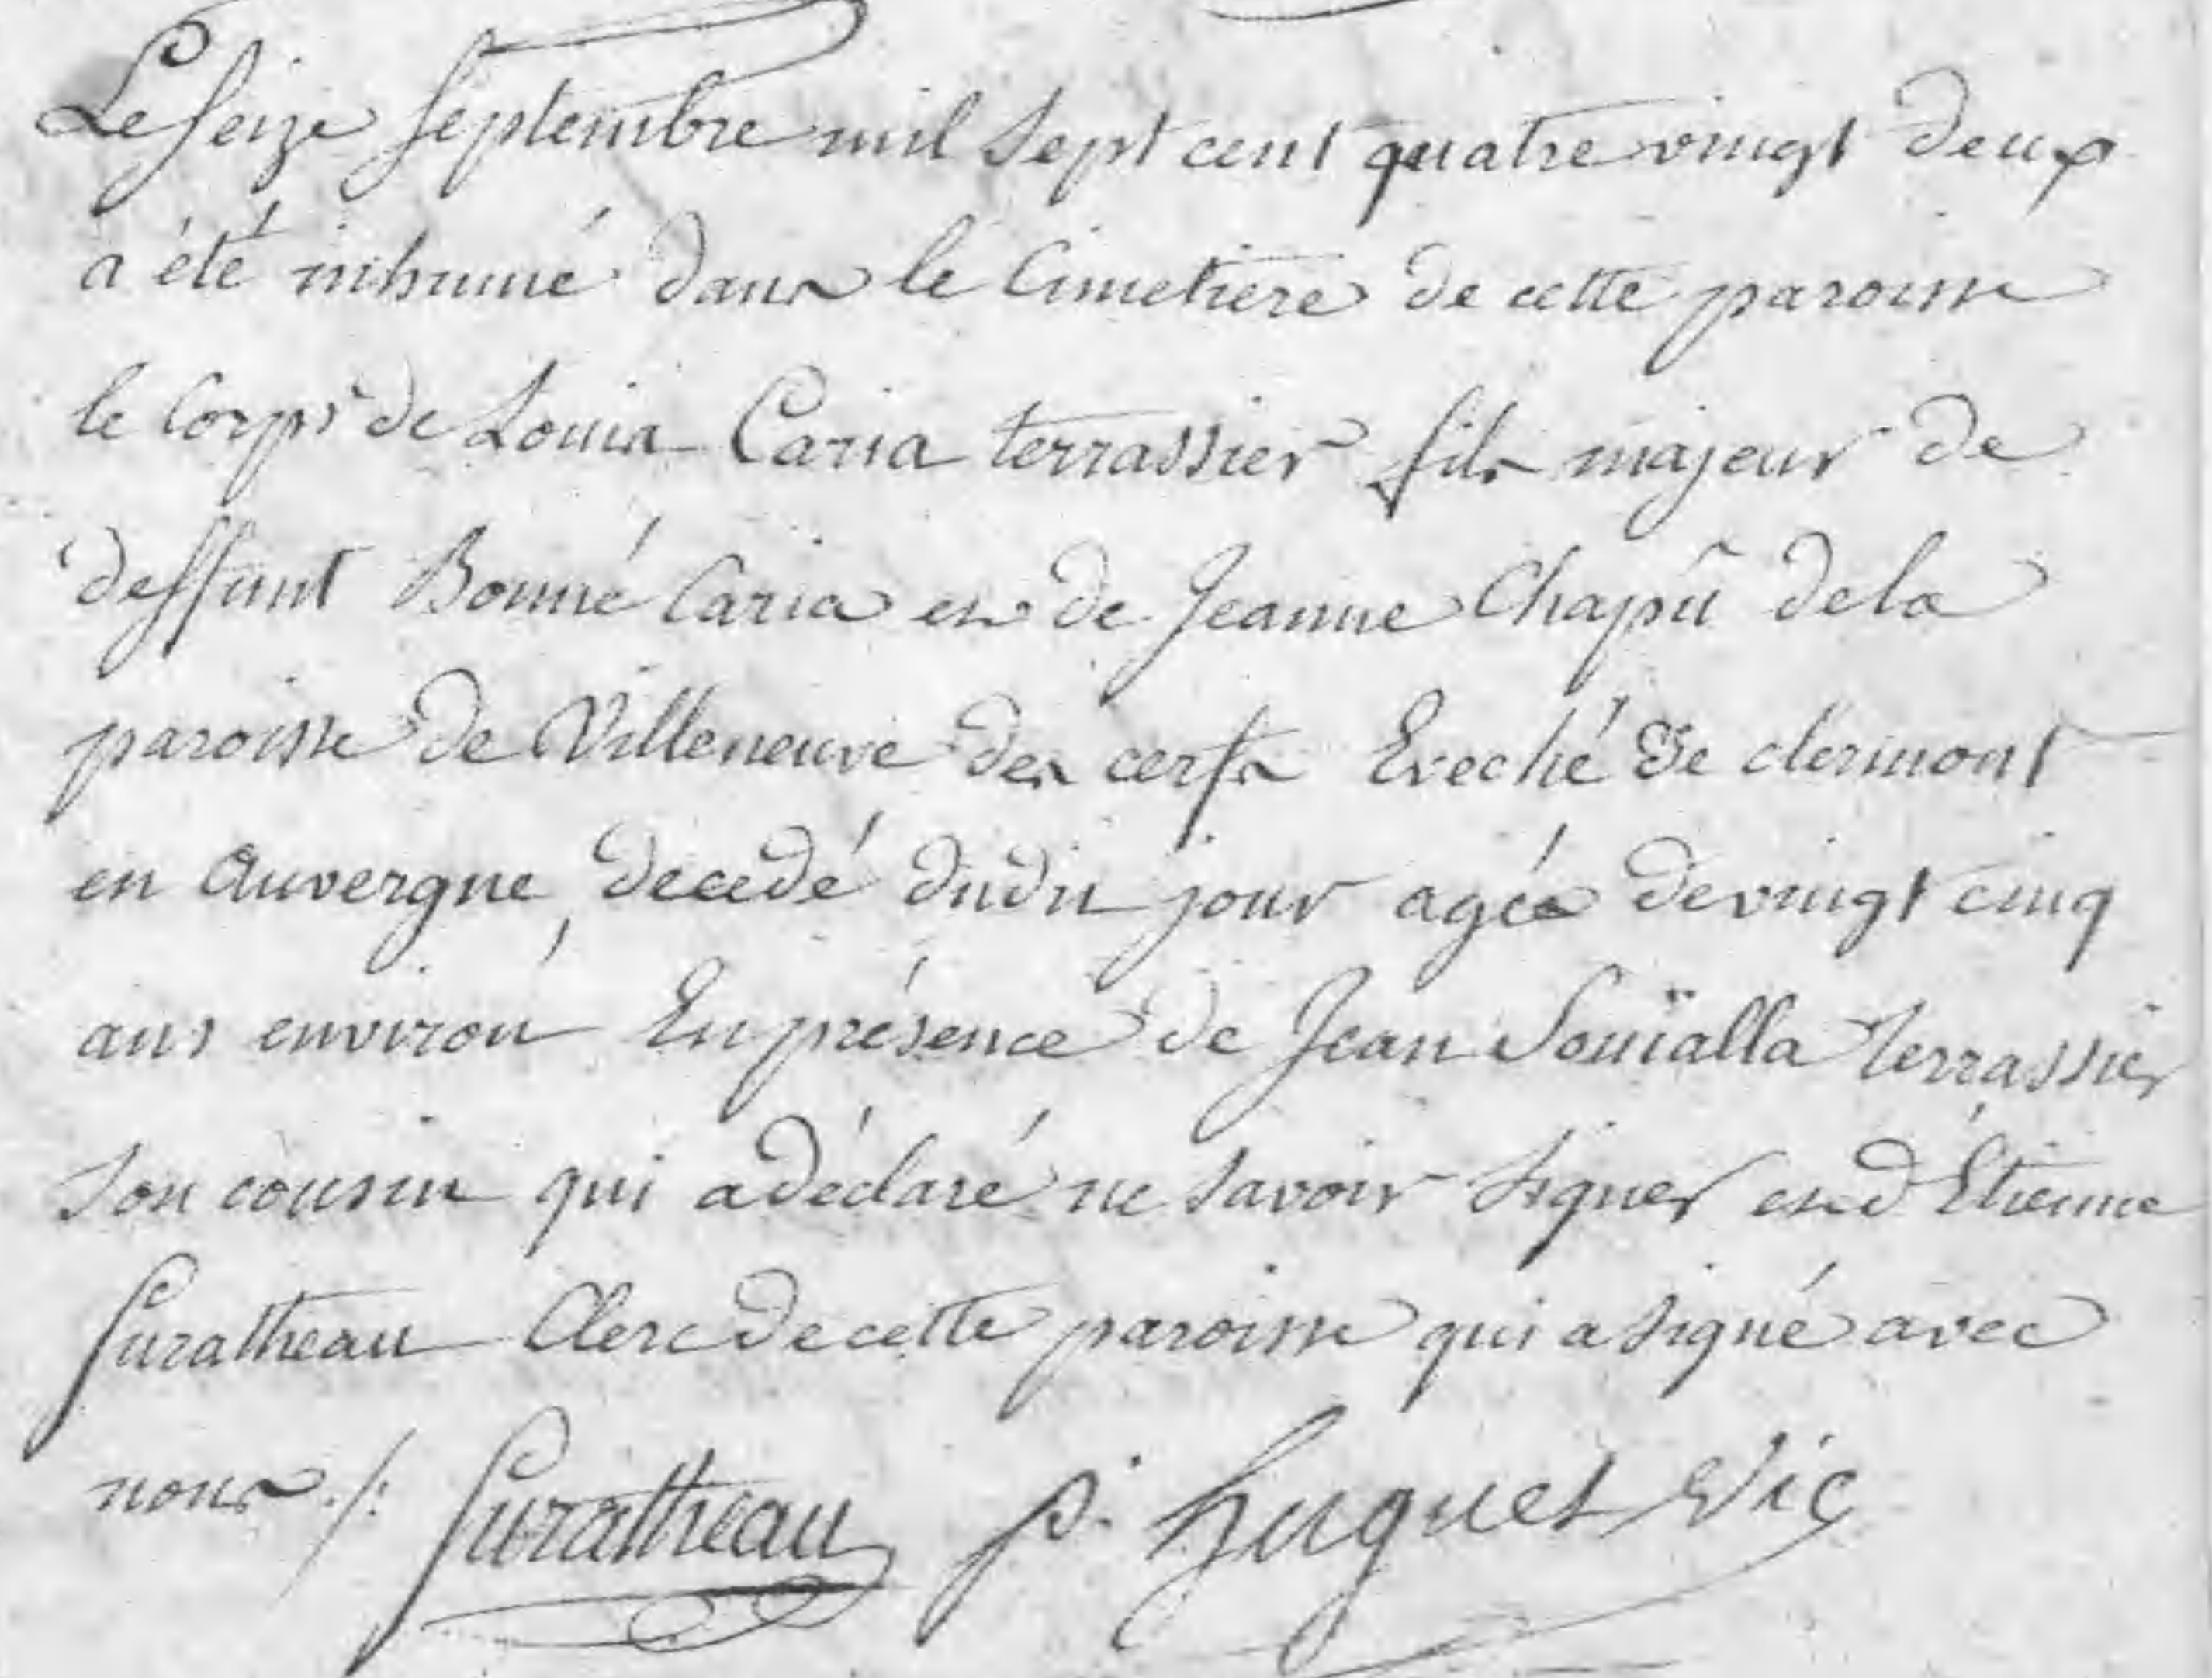 Le seize septembre mil sept cent quatre vingt deux
a été inhumé dans le Cimetiere de cette paroisse
le Corps de Louis Caria terrassier fils majeur de
deffunt Bonné Caria et de Jeanne Chapû de la
paroisse de Villeneuve des cerfs Eveché de clermont
en Auvergne, decedé dudit jour agée de vingt cinq
ans environ En présence de Jean Souïalla terrassier
son cousin qui a déclaré ne savoir signer et d'Étienne
Suratheau Clerc de cette paroisse qui a signé avec
nous ./. Suratheau p. huguet Vic